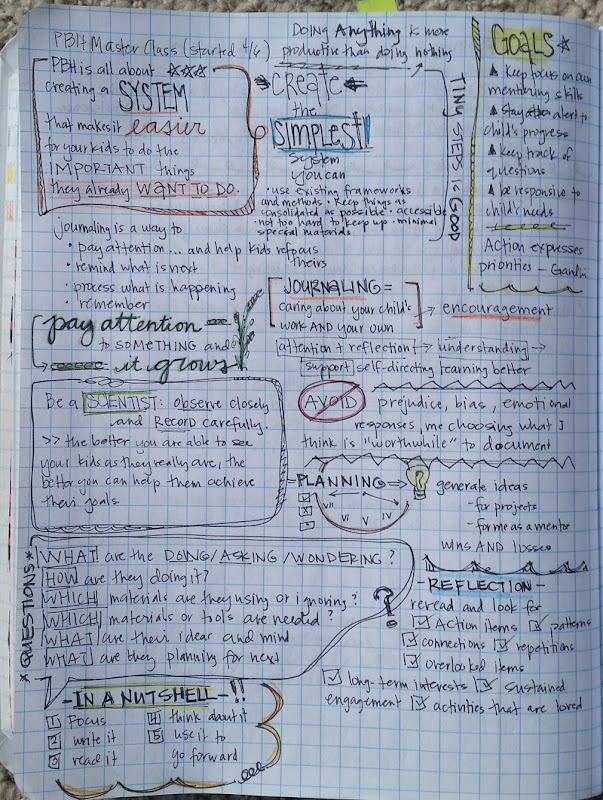 PBH Master Class (started 4/6)
DOING Anything is more
productive than doing nothing
PBH is all about
creating a SYSTEM
that makes it easier
for your kids to do the
IMPORTANT things
they already WANT TO DO.
CREATE
the
SIMPLEST
system
you can
• use existing frameworks
and methods • keep things as
consolidated as possible • accessible
• not too hard to keep up • minimal
special materials
TINY STEPS IS GOOD
GOALS
keep focus on own
mentoring skills
stay alert to
child's progress
keep track of
questions
be responsive to
child's needs
Action expresses
priorities – Gandhi
journaling is a way to
• pay attention ... and help kids refocus
theirs
• remind what is next
• process what is happening
• remember
pay attention
to SOMETHING and
it grows
JOURNALING =
caring about your child's
work AND your own
→ encouragement
attention + reflection → understanding →
support self-directing learning better
Be a SCIENTIST: observe closely
and RECORD carefully.
>> the better you are able to see
your kids as they really are, the
better you can help them achieve
their goals.
AVOID prejudice, bias, emotional
responses, me choosing what I
think is "worthwhile" to document
-PLANNING→
VII VI V IV
generate ideas
- for projects
- for me as a mentor
wins AND losses
*QUESTIONS*
WHAT are the DOING/ASKING/WONDERING?
HOW are they doing it?
WHICH materials are they using or ignoring?
WHICH materials or tools are needed?
WHAT are their idear and mind
WHAT are they planning for next
?
-REFLECTION-
reread and look for
Action items patterns
connections repetitions
overlooked items
long-term interests sustained
engagement activities that are loved
-IN A NUTSHELL-!!
1 Focus
2 write it
3 read it
4 think about it
5 use it to
go forward